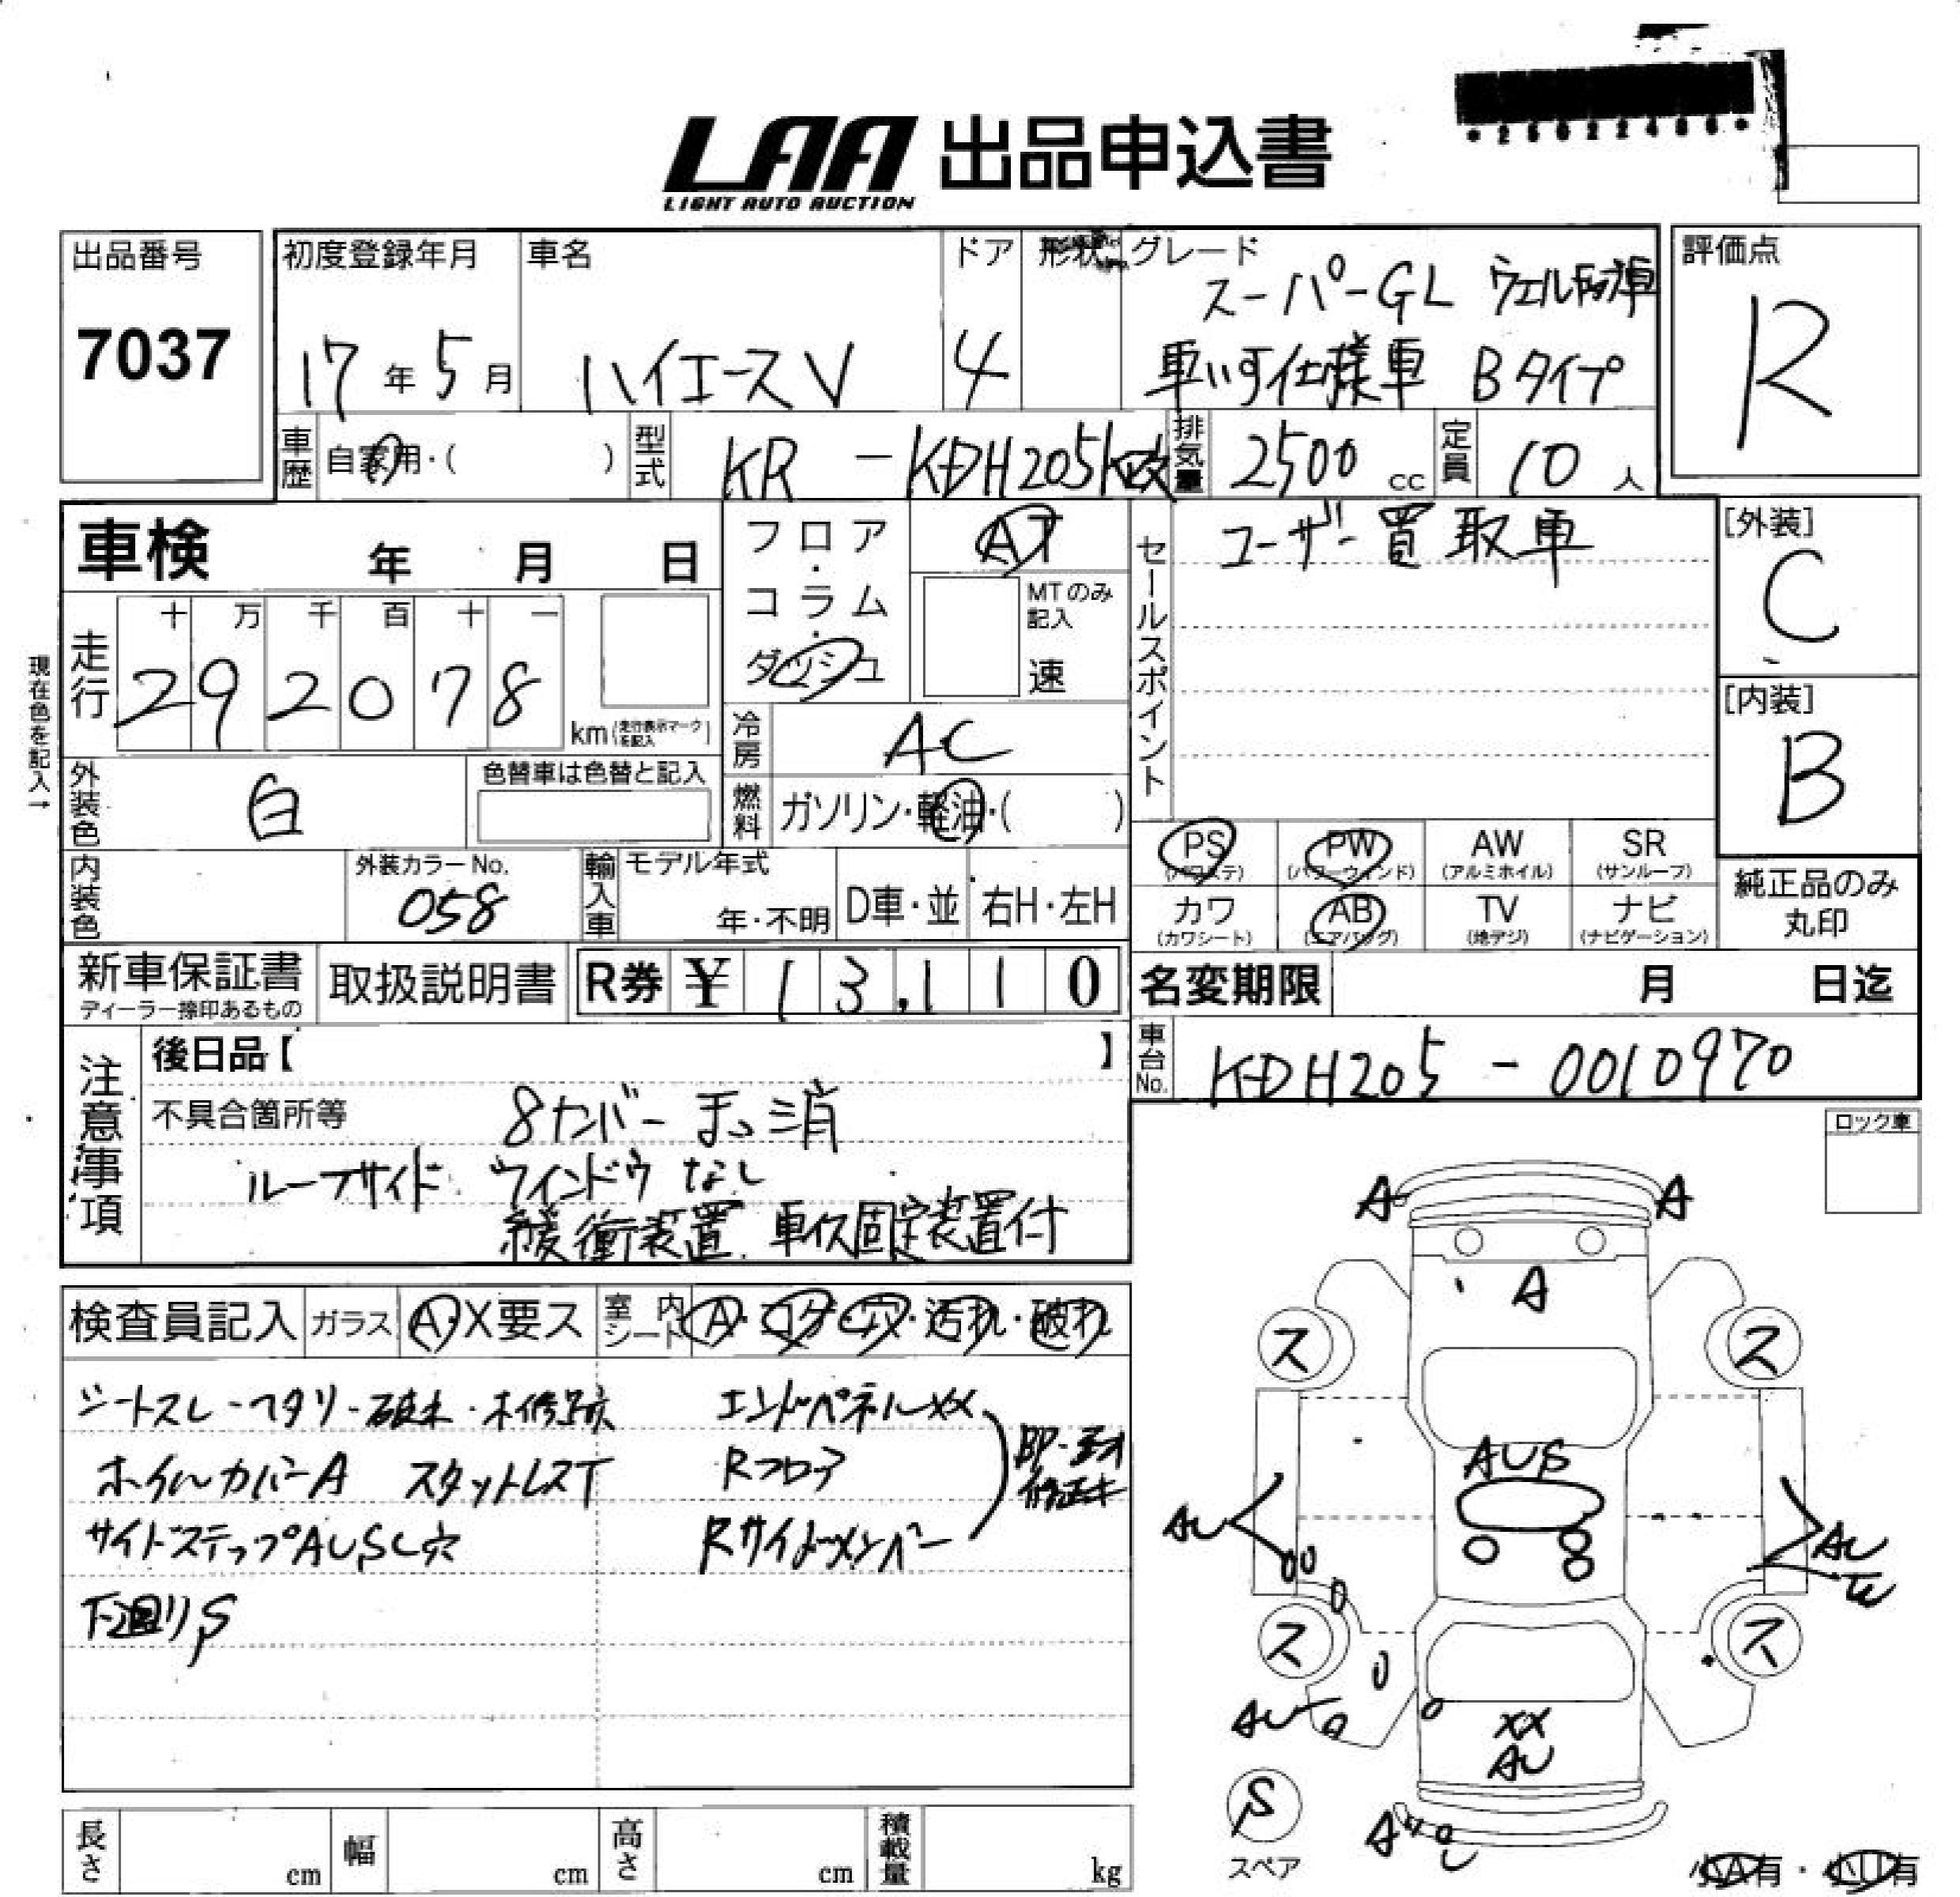 *25022486*
LAA 出品申込書
LIGHT AUTO AUCTION
出品番号
7037
初度登録年月
17年5月
車名
ハイエースV
ドア
4
形状
グレード
スーパーGL ウェル
車いす仕様車 Bタイプ
評価点
R
車歴
自家用・( )
型式
KR-KDH205K改
排気量
2500cc
定員
10人
車検 年 月 日
フロア・コラム・ダッシュ
AT
MTのみ記入
速
セールスポイント
ユーザー買取車
[外装]
C
現在色を記入→
走行
十 万 千 百 十 一
2 9 2 0 7 8
km(走行表示マークを記入)
冷房
AC
[内装]
B
外装色
白
色替車は色替と記入
燃料
ガソリン・軽油・( )
PS (パワステ)
PW (パワーウィンド)
AW (アルミホイル)
SR (サンルーフ)
カワ (カワシート)
AB (エアバッグ)
TV (地デジ)
ナビ (ナビゲーション)
純正品のみ丸印
内装色
外装カラーNo.
058
輸入車
モデル年式
年・不明
D車・並
右H・左H
新車保証書
ディーラー捺印あるもの
取扱説明書
R券 ¥ 13,110
名変期限 月 日迄
車台No.
KDH205-0010970
注意事項
後日品【 】
不具合箇所等
8ナンバー まっ消
ルーフサイド ウインドウ なし
緩衝装置 車イス固定装置付
ロック車
検査員記入
ガラス
A・X要ス
室内シート
A・コゲ・穴・汚れ・破れ
シートスレ・ヘタリ・破れ・補修跡
エンドパネルXX
ホイルカバーA スタットレスT
Rフロア
サイドステップAUSC穴
Rサイドメンバー
下廻りS
A
A
A
ス
ス
AUS
AU
AU
W
ス
ス
AU
XX
AU
S
スペア
AU
小A有・小U有
長さ cm
幅 cm
高さ cm
積載量 kg